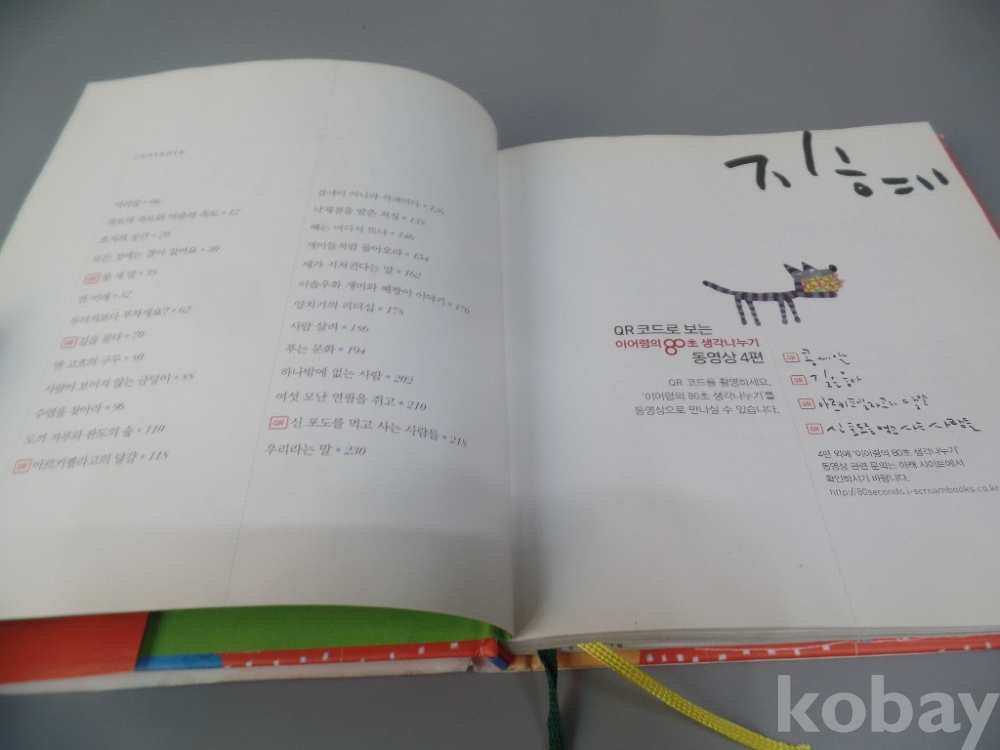 CONTENTS
머리글 • 06
정보의 속도와 마음의 속도 • 12
모든 것에는 결이 있어요 • 30
QR 콩 세 알 • 38
먼 미래 • 52
두더지보다 부자세요? • 62
QR 길을 묻다 • 70
반 고흐의 구두 • 80
사람이 보이지 않는 금덩이 • 88
수염을 찾아라 • 96
도끼 자루와 판도의 숲 • 110
QR 아르키펠라고의 달걀 • 118
검색이 아니라 사색이다 • 126
낙제점을 받은 처칠 • 135
해는 어디서 뜨나 • 146
개미들처럼 돌아오라 • 154
새가 지저귄다는 말 • 162
이솝우화 개미와 베짱이 이야기 • 170
양치기의 리더십 • 178
사람 살려 • 186
푸는 문화 • 194
하나밖에 없는 사람 • 202
여섯 모난 연필을 쥐고 • 210
QR 신 포도를 먹고 사는 사람들 • 218
우리라는 말 • 230
QR 코드로 보는
이어령의 80초 생각나누기
동영상 4편
QR 코드를 촬영하세요.
'이어령의 80초 생각나누기'를
동영상으로 만나실 수 있습니다.
QR 콩 세 알
QR 길을 묻다
QR 아르키펠라고의 달걀
QR 신 포도를 먹고 사는 사람들
4편 외에 '이어령의 80초 생각나누기'
동영상 관련 문의는 아래 사이트에서
확인하시기 바랍니다.
http://80seconds.i-screambooks.co.kr
kobay